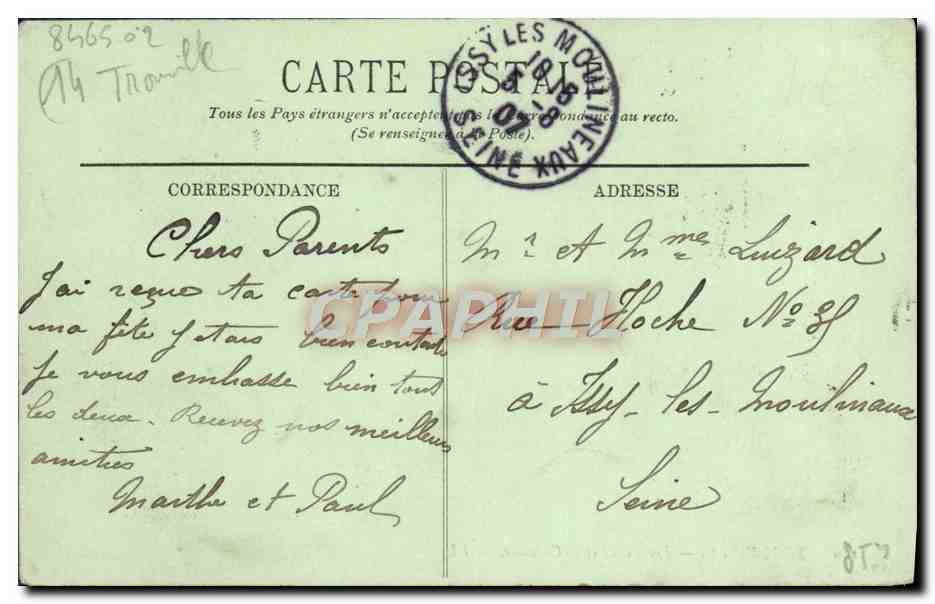 8456502
14 Trouville
CARTE POSTALE
Tous les Pays étrangers n'acceptent pas la Correspondance au recto.
(Se renseigner à la Poste).
ISSY LES MOULINEAUX
SEINE
CORRESPONDANCE
ADRESSE
Chers Parents
J'ai reçue ta carte pour
ma fête J'etais bien contente
Je vous embrasse bien tout
les deux. Recevez nos meilleurs
amitiés
Marthe et Paul
Mr et Mme Luizard
Rue Hoche No 35
à Issy-les-Moulineaux
Seine
CPAPHIL